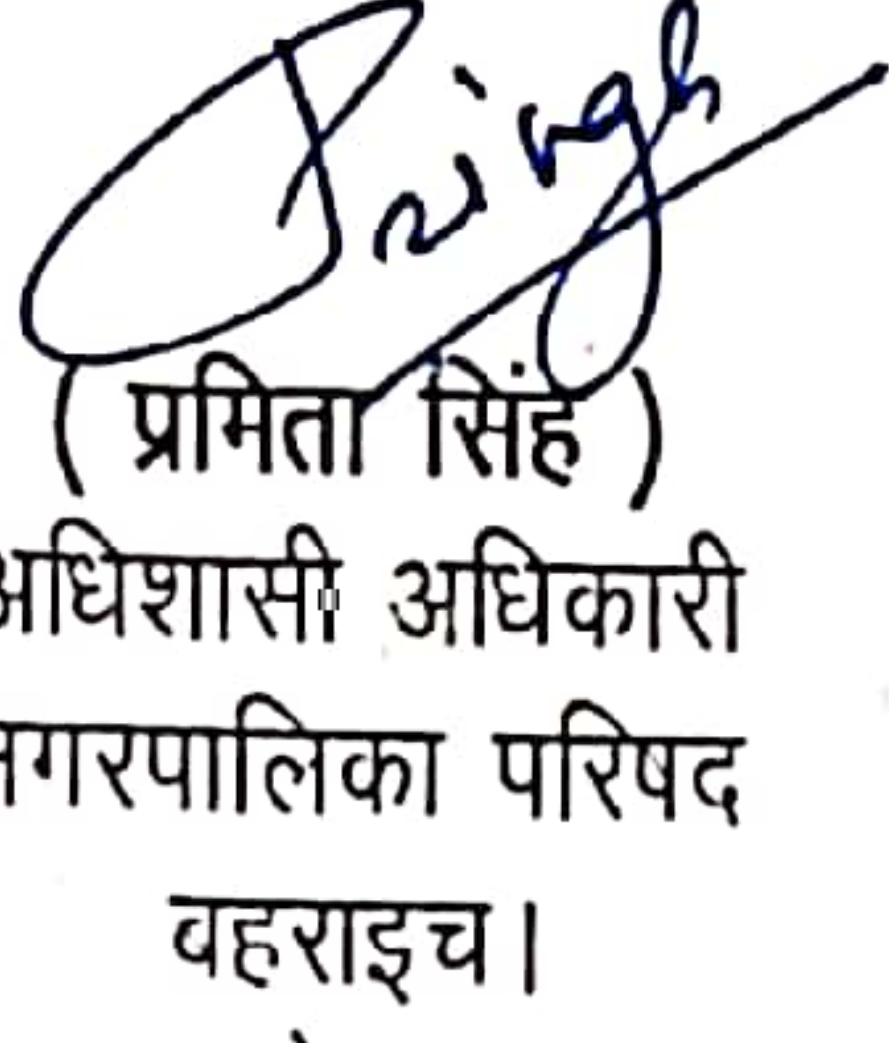 Psingh
( प्रमिता सिंह )
अधिशासी अधिकारी
नगरपालिका परिषद
वहराइच।